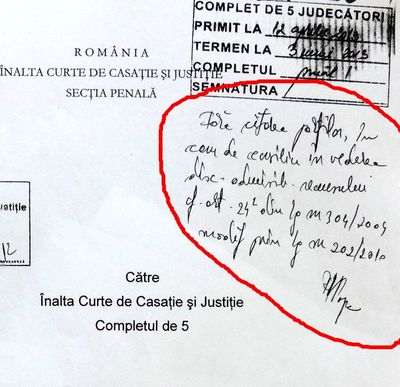 COMPLET DE 5 JUDECĂTORI
PRIMIT LA 12 aprilie 2013
TERMEN LA 3 iunie 2013
COMPLETUL
SEMNĂTURA
ROMÂNIA
ÎNALTA CURTE DE CASAŢIE ŞI JUSTIŢIE
SECŢIA PENALĂ
Fără citarea părţilor, în
cam de consiliu în vederea
disc. admisib. recursului
cf. art. 24² din lg nr 304/2004
modif prin lg nr 202/2010
ustiţie
12
Către
Înalta Curte de Casaţie şi Justiţie
Completul de 5